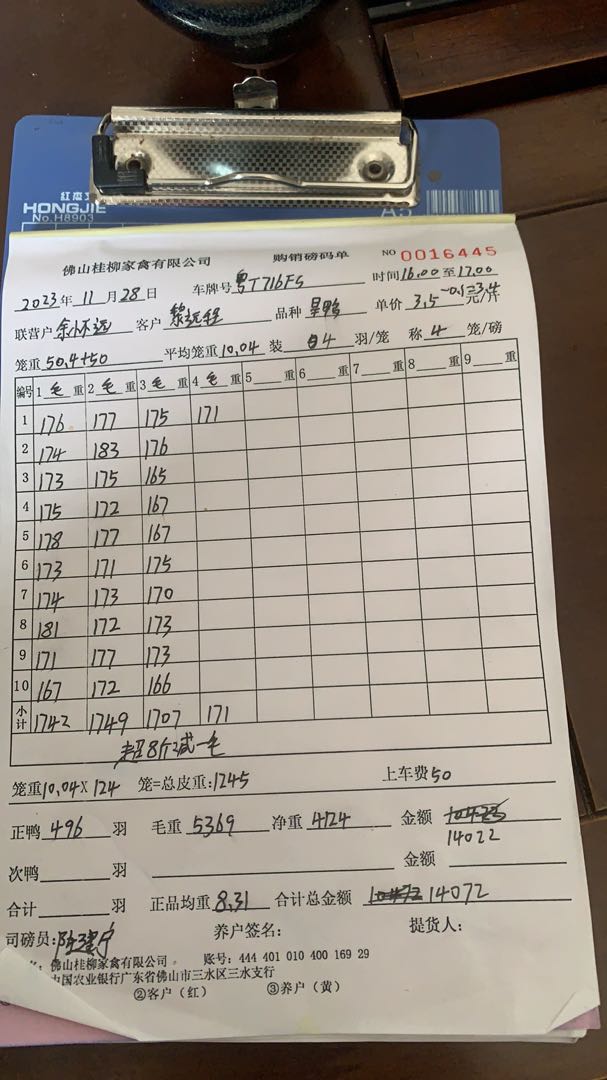 红杰
HONGJIE
No.H8903
A5
佛山桂柳家禽有限公司 购销磅码单 NO 0016445
2023年 11月 28日 车牌号 粤T716F5 时间16.00至17.00
联营户 余怀远 客户 黎远程 品种 旱鸭 单价 3.5-0.1=3.4 元/斤
笼重 50.4÷50 平均笼重 10.04 装 4 羽/笼 称 4 笼/磅
编号 1 毛 重 2 毛 重 3 毛 重 4 毛 重 5 重 6 重 7 重 8 重 9 重
1 176 177 175 171
2 174 183 176
3 173 175 165
4 175 172 167
5 178 177 167
6 173 171 175
7 174 173 170
8 181 172 173
9 171 177 173
10 167 172 166
小计 1742 1749 1707 171
超8斤减一毛
笼重10.04 X 124 笼=总皮重:1245 上车费50
正鸭 496 羽 毛重 5369 净重 4124 金额 10423
14022
次鸭 羽 金额
合计 羽 正品均重 8.31 合计总金额 10472 14072
司磅员: 养户签名: 提货人:
名: 佛山桂柳家禽有限公司 账号: 444 401 010 400 169 29
中国农业银行广东省佛山市三水区三水支行
②客户（红） ③养户（黄）